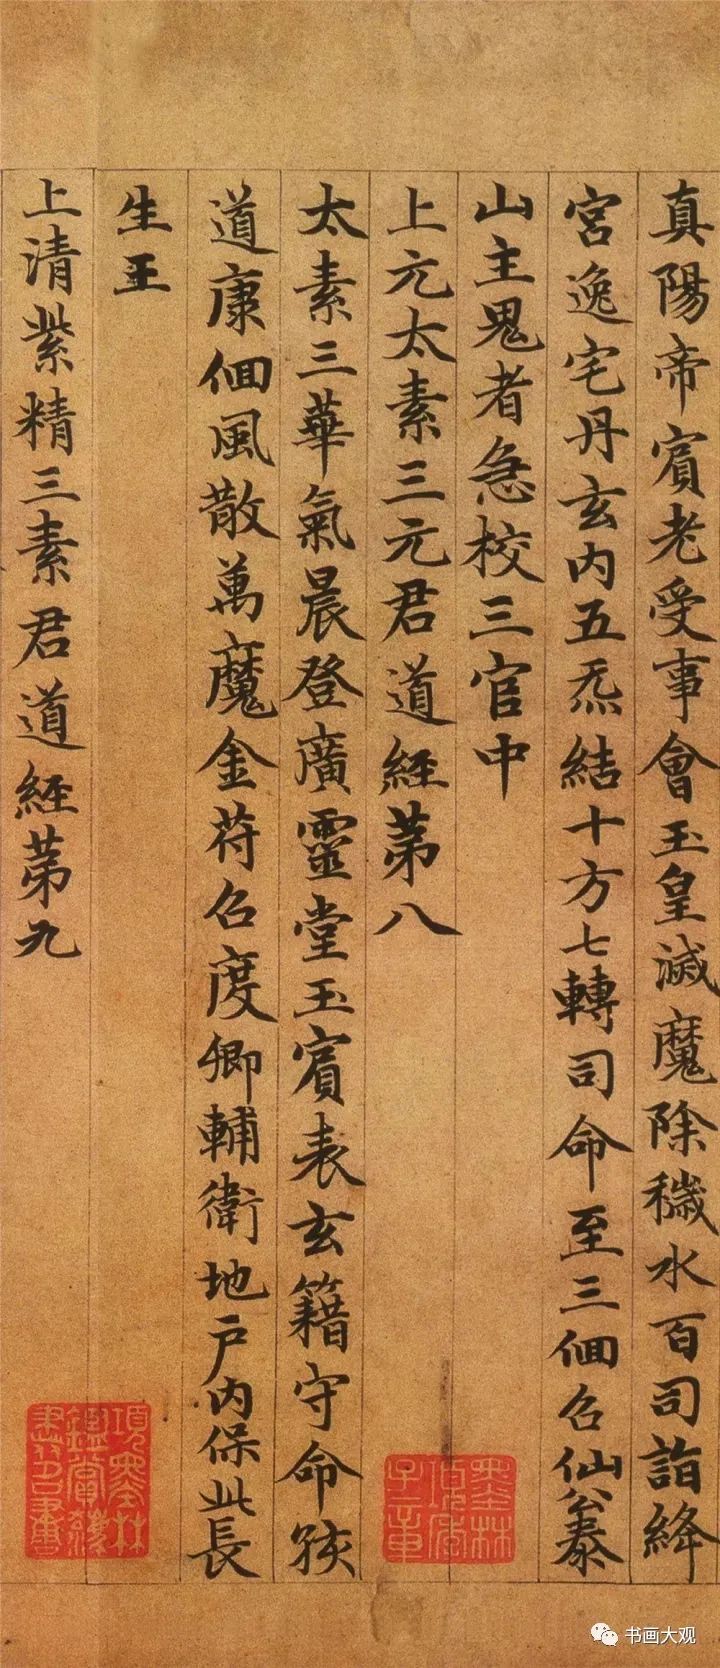 真陽帝賔老受事會玉皇滅魔除穢水百司詣絳
宮逸宅丹玄內五炁結十方七轉司命至三佪召仙翁泰
山主鬼者急校三官中
上元太素三元君道經苐八
太素三華氣晨登廣靈堂玉賔表玄籍守命
道康佪風散萬魔金苻召度卿輔衛地户內保此長
生王
上清紫精三素君道經苐九
墨林
子章
項墨林
鑑賞
書画大观